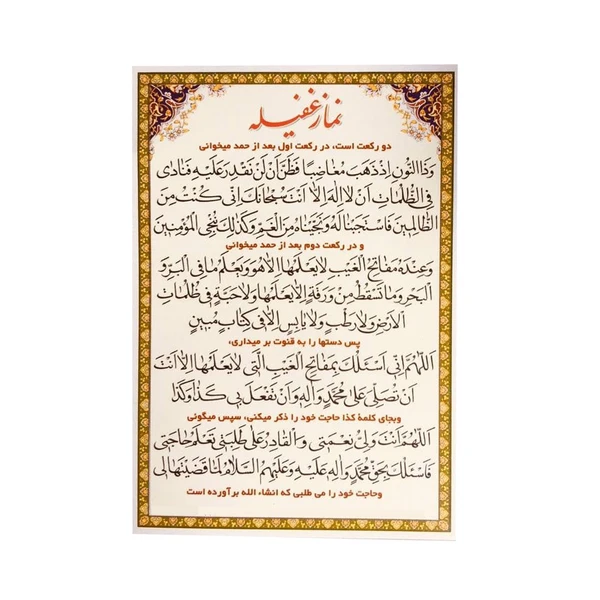 نماز غفیله
دو رکعت است، در رکعت اول بعد از حمد میخوانی
وَذَا النُّونِ اِذْ ذَهَبَ مُغَاضِبًا فَظَنَّ اَنْ لَنْ نَقْدِرَ عَلَيْهِ فَنَادَى
فِى الظُّلُمَاتِ اَنْ لَا اِلٰهَ اِلَّا اَنْتَ سُبْحَانَكَ اِنِّى كُنْتُ مِنَ
الظَّالِمِينَ فَاسْتَجَبْنَا لَهُ وَنَجَّيْنَاهُ مِنَ الْغَمِّ وَكَذٰلِكَ نُنْجِى الْمُؤْمِنِينَ
و در رکعت دوم بعد از حمد میخوانی
وَعِنْدَهُ مَفَاتِحُ الْغَيْبِ لَا يَعْلَمُهَا اِلَّا هُوَ وَيَعْلَمُ مَا فِى الْبَرِّ وَ
الْبَحْرِ وَمَا تَسْقُطُ مِنْ وَرَقَةٍ اِلَّا يَعْلَمُهَا وَلَا حَبَّةٍ فِى ظُلُمَاتِ
الْاَرْضِ وَلَا رَطْبٍ وَلَا يَابِسٍ اِلَّا فِى كِتَابٍ مُبِينٍ
پس دستها را به قنوت بر میداری،
اَللّٰهُمَّ اِنِّى اَسْئَلُكَ بِمَفَاتِحِ الْغَيْبِ الَّتِى لَا يَعْلَمُهَا اِلَّا اَنْتَ
اَنْ تُصَلِّىَ عَلٰى مُحَمَّدٍ وَاٰلِهِ وَاَنْ تَفْعَلَ بِى كَذَا وَكَذَا
وبجای کلمهٔ کذا حاجت خود را ذکر میکنی، سپس میگوئی
اَللّٰهُمَّ اَنْتَ وَلِىُّ نِعْمَتِى وَالْقَادِرُ عَلٰى طَلِبَتِى تَعْلَمُ حَاجَتِى
فَاَسْئَلُكَ بِحَقِّ مُحَمَّدٍ وَاٰلِهِ عَلَيْهِ وَعَلَيْهِمُ السَّلَامُ لَمَّا قَضَيْتَهَا لِى
وحاجت خود را می طلبی که انشاء الله برآورده است